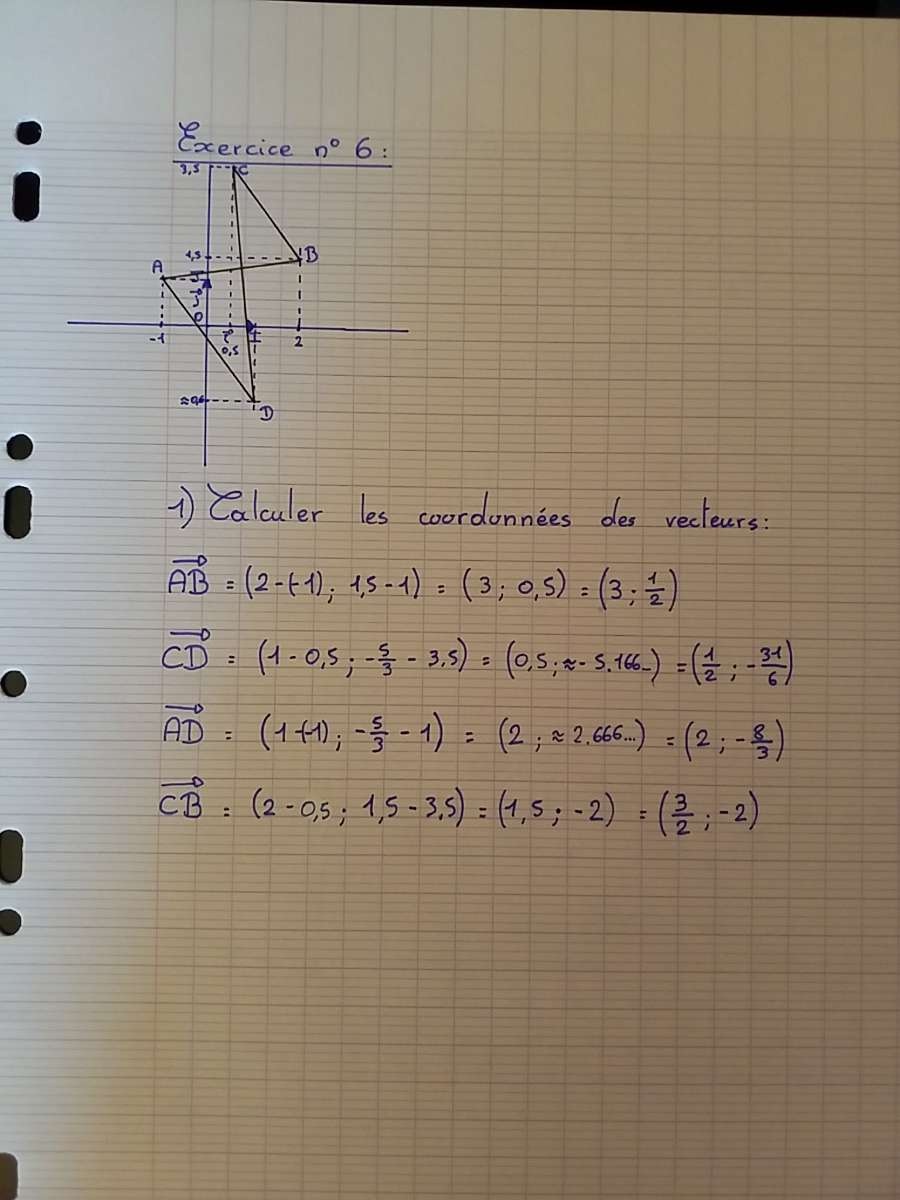 Exercice n° 6 :
3,5 C
1,5 B
A J
j
O
-1 0,5 I 2
≈0,6
D
1) Calculer les coordonnées des vecteurs :
AB = (2-(-1) ; 1,5-1) = (3 ; 0,5) = (3 ; 1/2)
CD = (1-0,5 ; -5/3 - 3,5) = (0,5 ; ≈-5.166..) = (1/2 ; -31/6)
AD = (1-(-1) ; -5/3 - 1) = (2 ; ≈2.666...) = (2 ; -8/3)
CB = (2-0,5 ; 1,5-3,5) = (1,5 ; -2) = (3/2 ; -2)